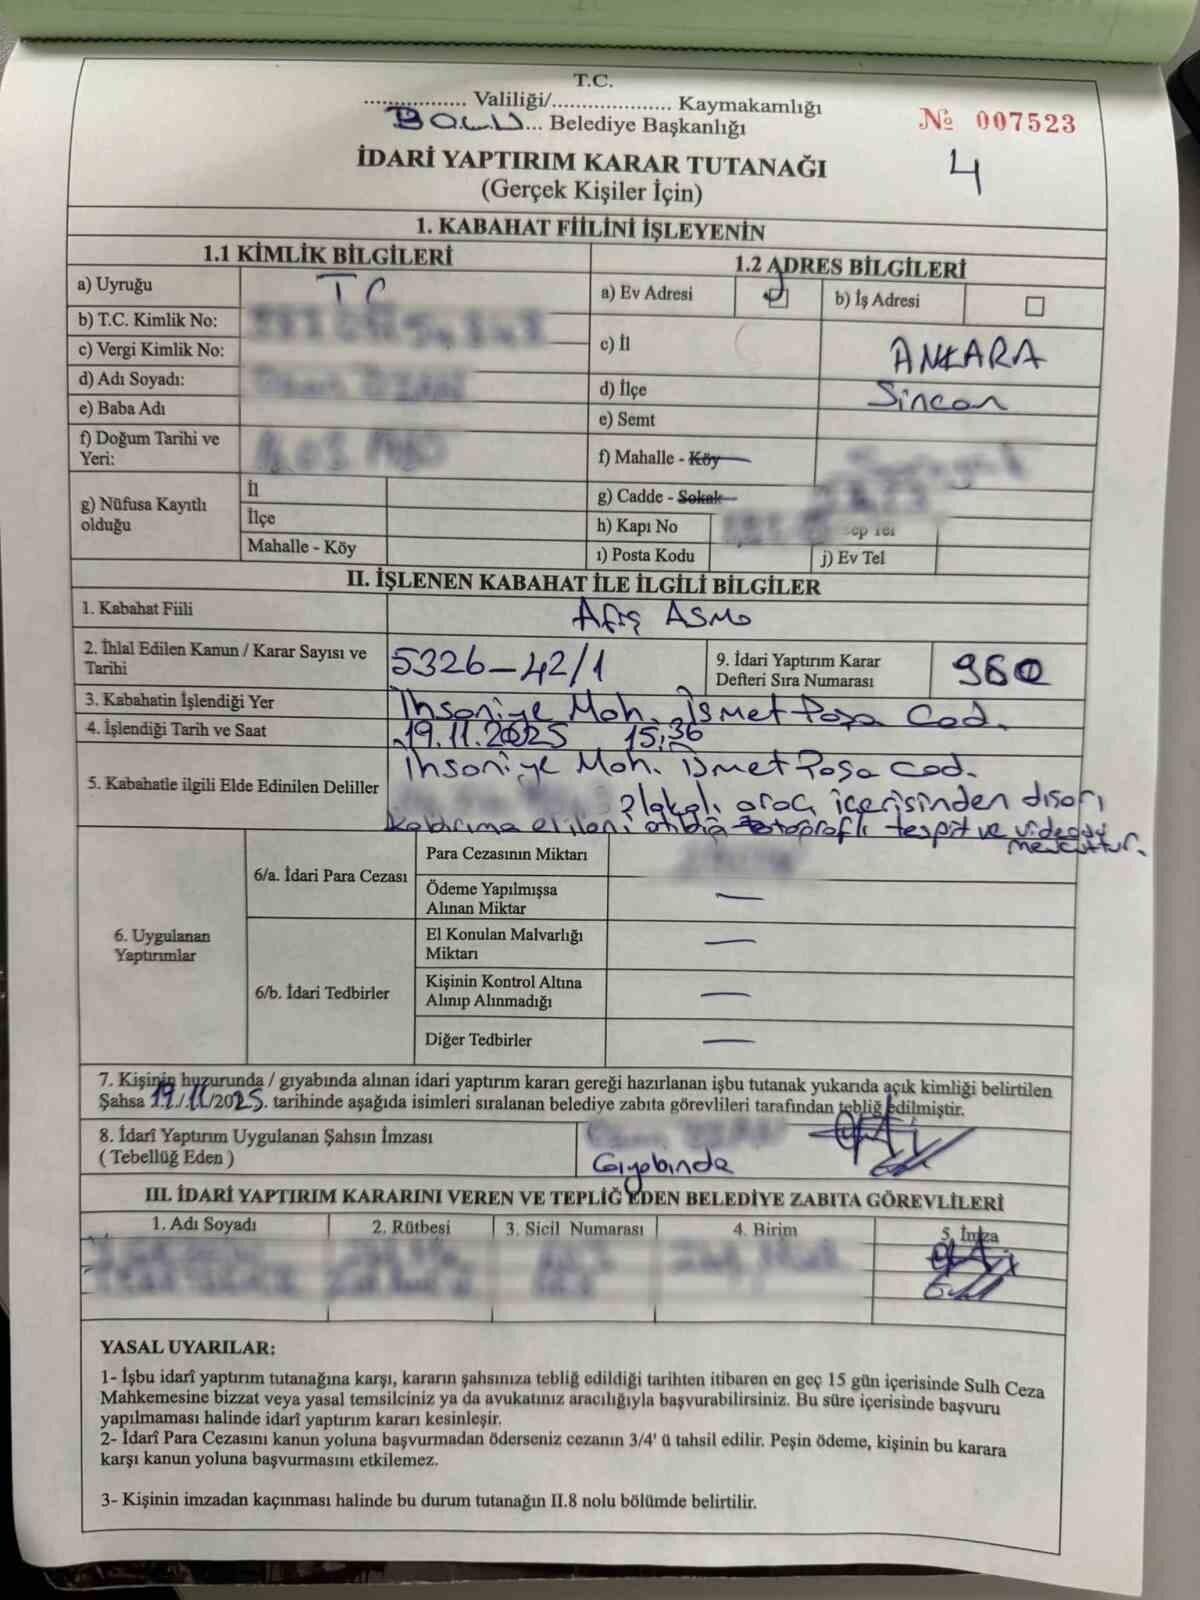 T.C.
................. Valiliği/..................... Kaymakamlığı
BOLU... Belediye Başkanlığı
№ 007523
İDARİ YAPTIRIM KARAR TUTANAĞI
4
(Gerçek Kişiler İçin)
1. KABAHAT FİİLİNİ İŞLEYENİN
1.1 KİMLİK BİLGİLERİ
1.2 ADRES BİLGİLERİ
a) Uyruğu TC
a) Ev Adresi b) İş Adresi
b) T.C. Kimlik No:
c) Vergi Kimlik No:
c) İl ANKARA
d) Adı Soyadı:
d) İlçe Sincan
e) Baba Adı
e) Semt
f) Doğum Tarihi ve Yeri:
f) Mahalle - Köy
g) Nüfusa Kayıtlı olduğu
İl
g) Cadde - Sokak
İlçe
h) Kapı No
Mahalle - Köy
ı) Posta Kodu j) Ev Tel
II. İŞLENEN KABAHAT İLE İLGİLİ BİLGİLER
1. Kabahat Fiili Afiş ASMA
2. İhlal Edilen Kanun / Karar Sayısı ve Tarihi 5326-42/1
9. İdari Yaptırım Karar Defteri Sıra Numarası
3. Kabahatin İşlendiği Yer İhsaniye Mah. İsmet Paşa Cad.
4. İşlendiği Tarih ve Saat 19.11.2025 15:36
5. Kabahatle ilgili Elde Edinilen Deliller İhsaniye Mah. İsmet Paşa Cad.
plakalı araç içerisinden dışarı
kaldırıma tespit ve
mevcuttur.
6. Uygulanan Yaptırımlar
6/a. İdari Para Cezası
Para Cezasının Miktarı
Ödeme Yapılmışsa Alınan Miktar —
6/b. İdari Tedbirler
El Konulan Malvarlığı Miktarı —
Kişinin Kontrol Altına Alınıp Alınmadığı —
Diğer Tedbirler —
7. Kişinin huzurunda / gıyabında alınan idari yaptırım kararı gereği hazırlanan işbu tutanak yukarıda açık kimliği belirtilen
Şahsa 19./11/2025. tarihinde aşağıda isimleri sıralanan belediye zabıta görevlileri tarafından tebliğ edilmiştir.
8. İdarî Yaptırım Uygulanan Şahsın İmzası
( Tebellüğ Eden )
Gıyabında
III. İDARİ YAPTIRIM KARARINI VEREN VE TEPLİĞ EDEN BELEDİYE ZABITA GÖREVLİLERİ
1. Adı Soyadı 2. Rütbesi 3. Sicil Numarası 4. Birim 5. İmza
YASAL UYARILAR:
1- İşbu idarî yaptırım tutanağına karşı, kararın şahsınıza tebliğ edildiği tarihten itibaren en geç 15 gün içerisinde Sulh Ceza
Mahkemesine bizzat veya yasal temsilciniz ya da avukatınız aracılığıyla başvurabilirsiniz. Bu süre içerisinde başvuru
yapılmaması halinde idarî yaptırım kararı kesinleşir.
2- İdarî Para Cezasını kanun yoluna başvurmadan öderseniz cezanın 3/4' ü tahsil edilir. Peşin ödeme, kişinin bu karara
karşı kanun yoluna başvurmasını etkilemez.
3- Kişinin imzadan kaçınması halinde bu durum tutanağın II.8 nolu bölümde belirtilir.